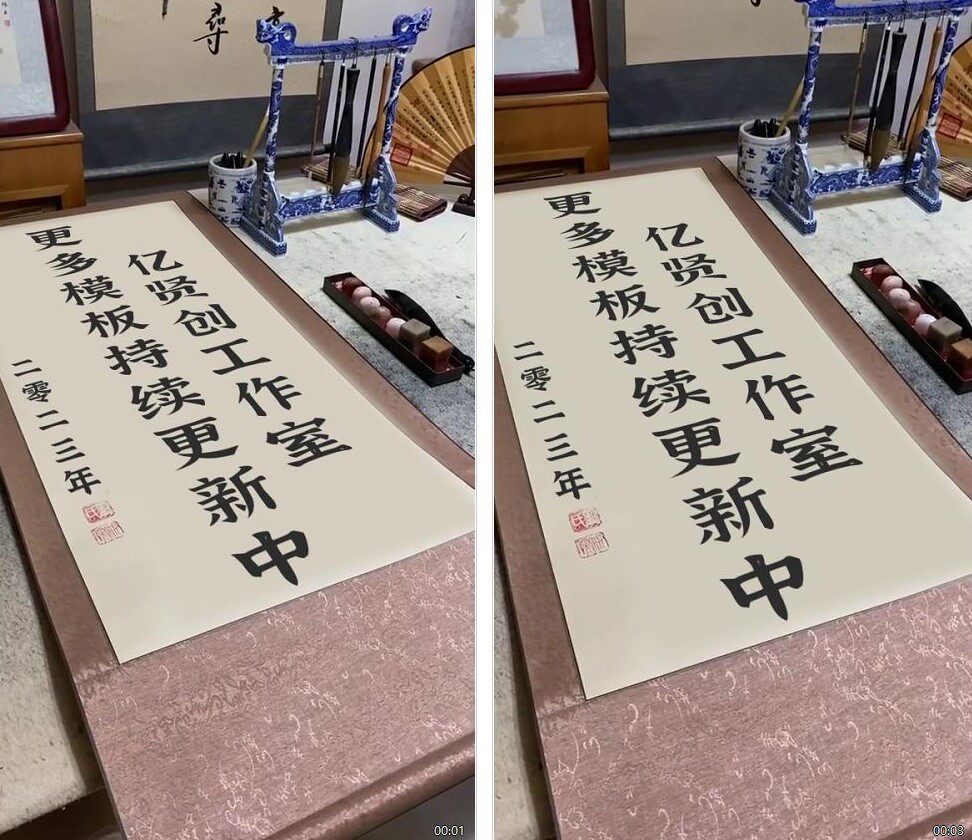 尋
亿贤创工作室
更多模板持续更新中
二零二三年
00:01
亿贤创工作室
更多模板持续更新中
二零二三年
00:03